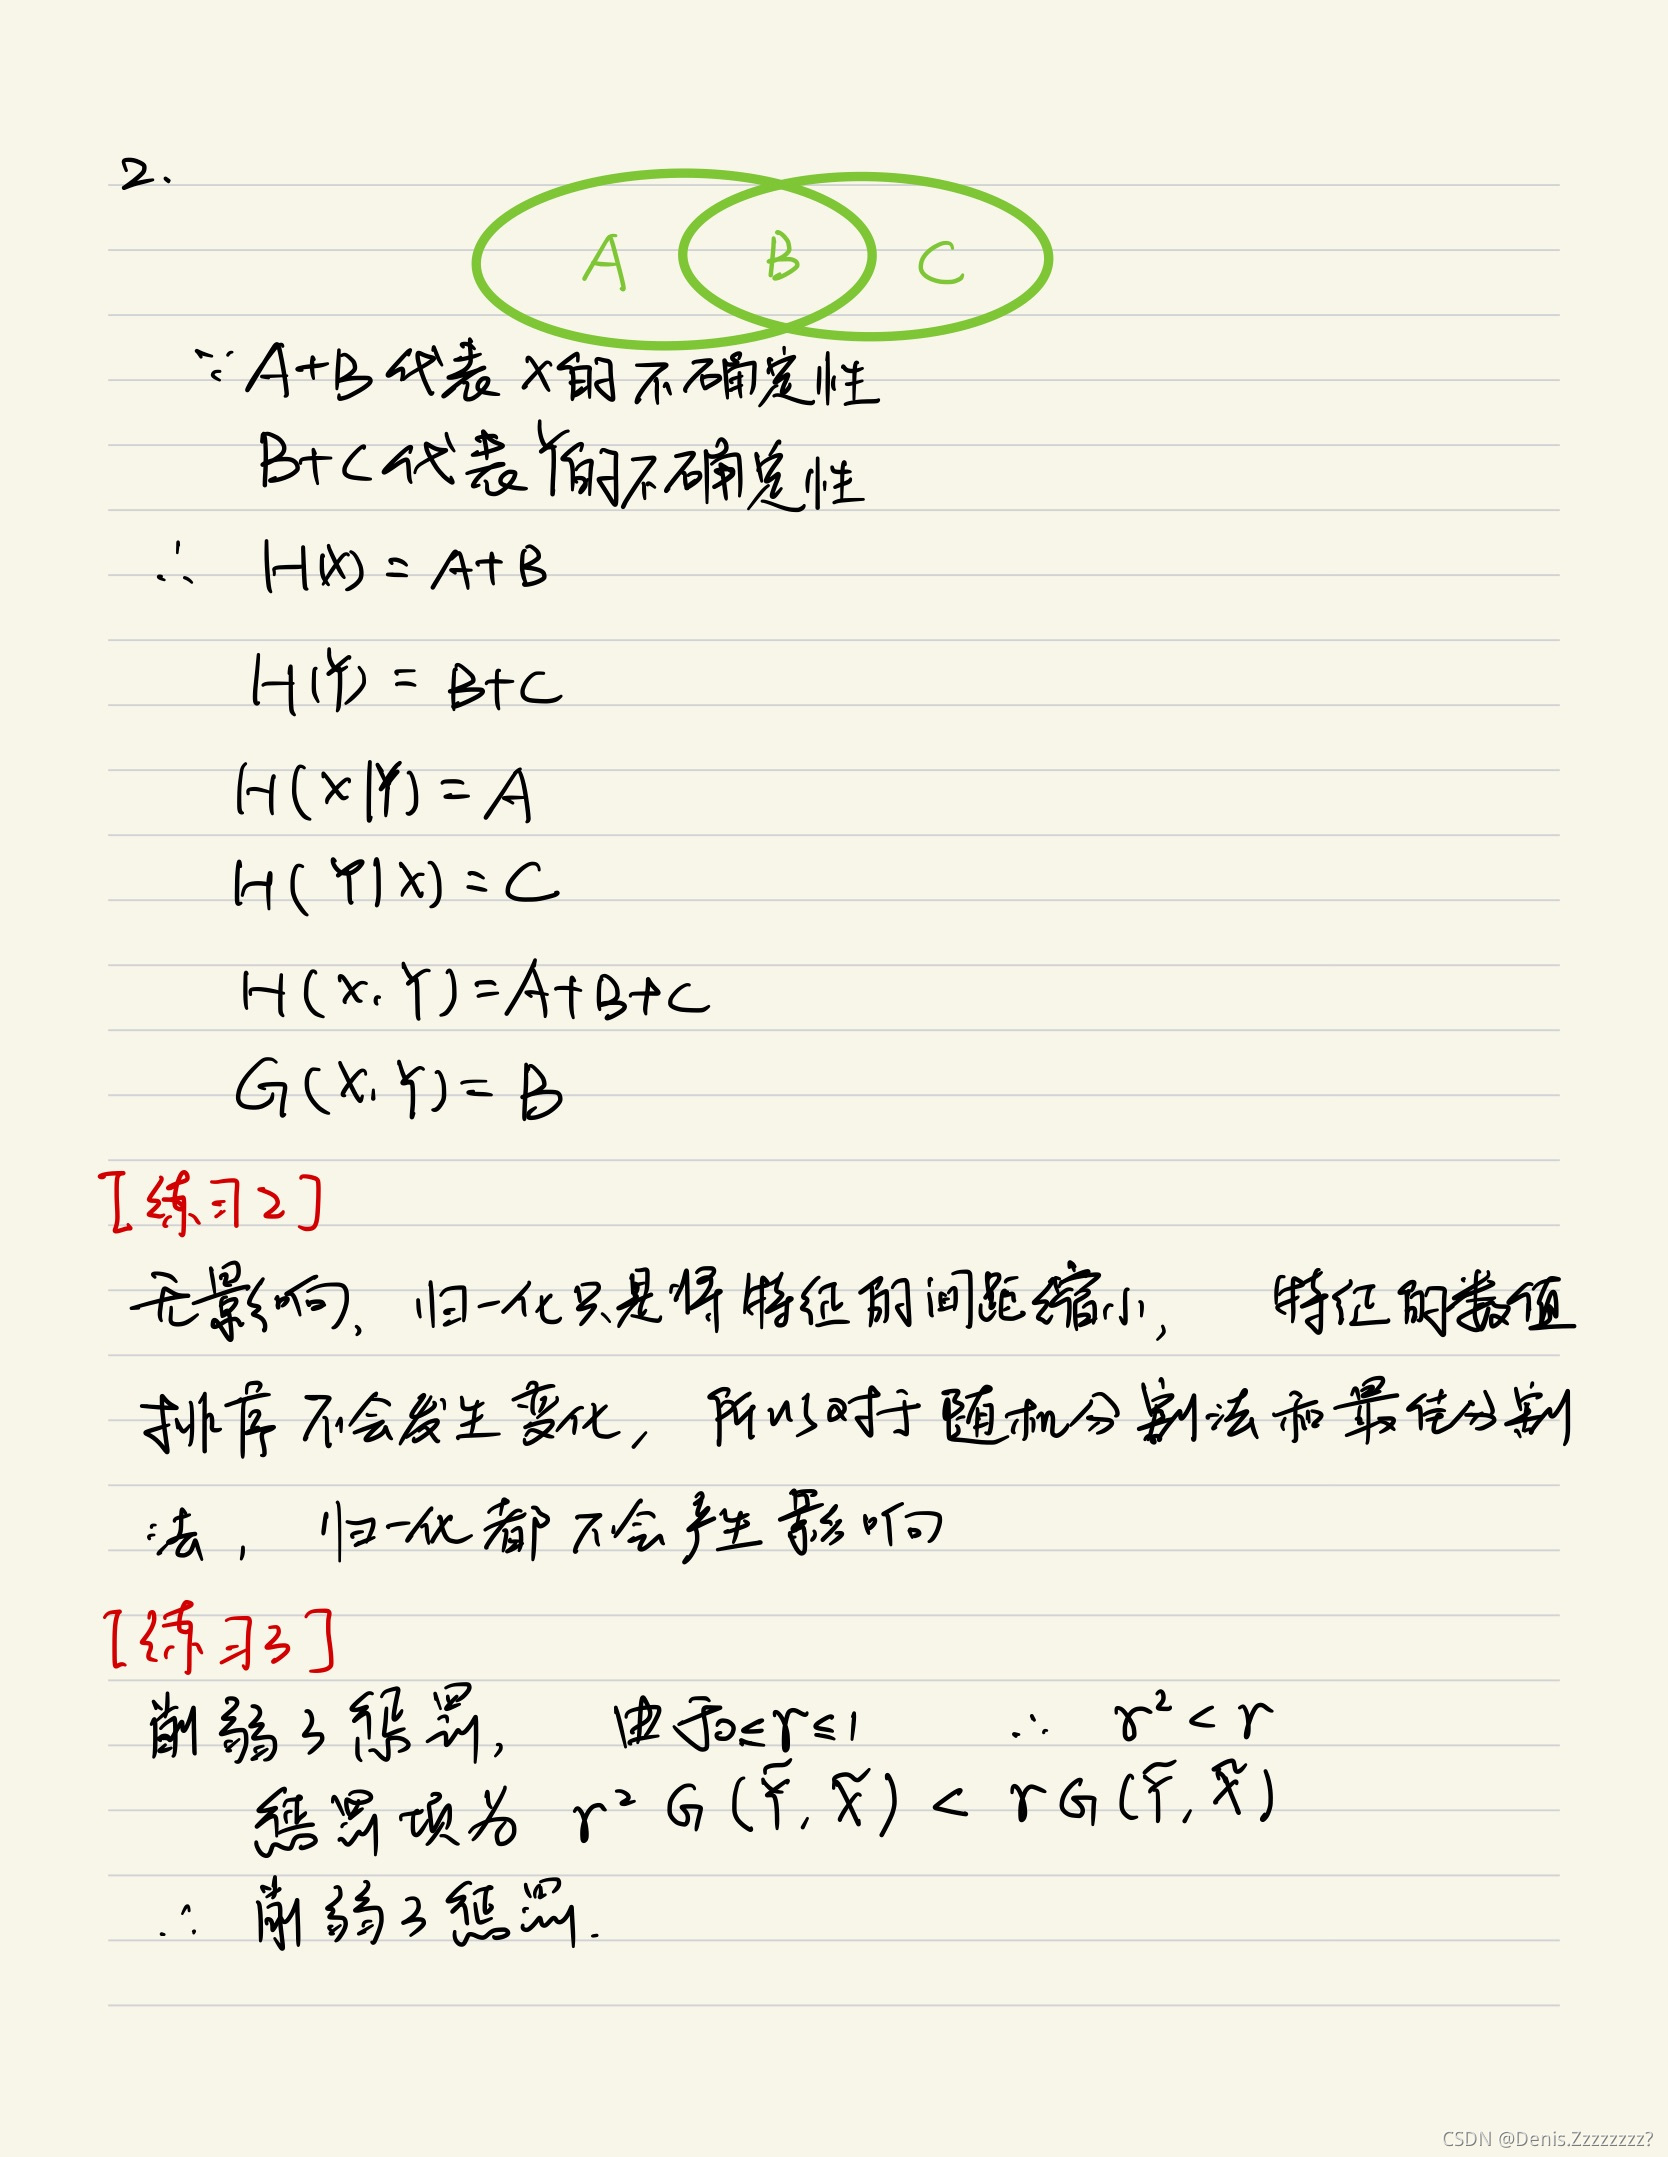 2.
A B C
∵ A+B代表X的不确定性
B+C代表Y的不确定性
∴ H(X) = A+B
H(Y) = B+C
H(X|Y) = A
H(Y|X) = C
H(X,Y) = A+B+C
G(X,Y) = B
[练习2]
无影响,归一化只是将特征的间距缩小,特征的数值
排序不会发生变化,所以对于随机分割法和最佳分割
法,归一化都不会产生影响
[练习3]
削弱了惩罚,由于0≤r≤1 ∴ r² < r
惩罚项为 r² G(Ỹ, X̃) < r G(Ỹ, X̃)
∴ 削弱了惩罚.
CSDN @Denis.Zzzzzzzz?